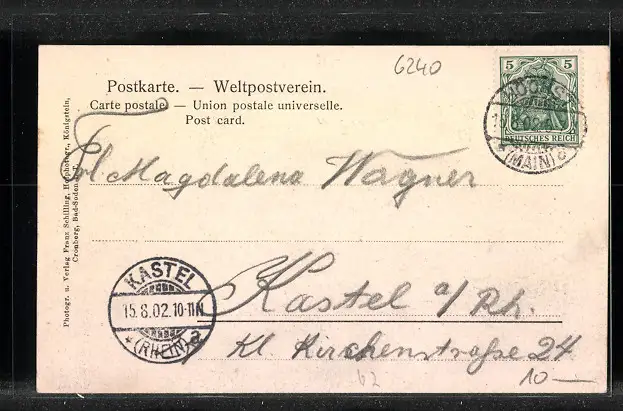 6240
Postkarte. — Weltpostverein.
Carte postale — Union postale universelle.
Post card.
5 5
DEUTSCHES REICH
HÖCHST
(MAIN)
Frl. Magdalena Wagner
Kastel a/Rh.
Kl. Kirchenstraße 24
KASTEL
15.8.02.10-11N
* (RHEIN) a
62
10 —
Photogr. u. Verlag Franz Schilling, Hofphotogr., Königstein,
Cronberg, Bad-Soden a. T.